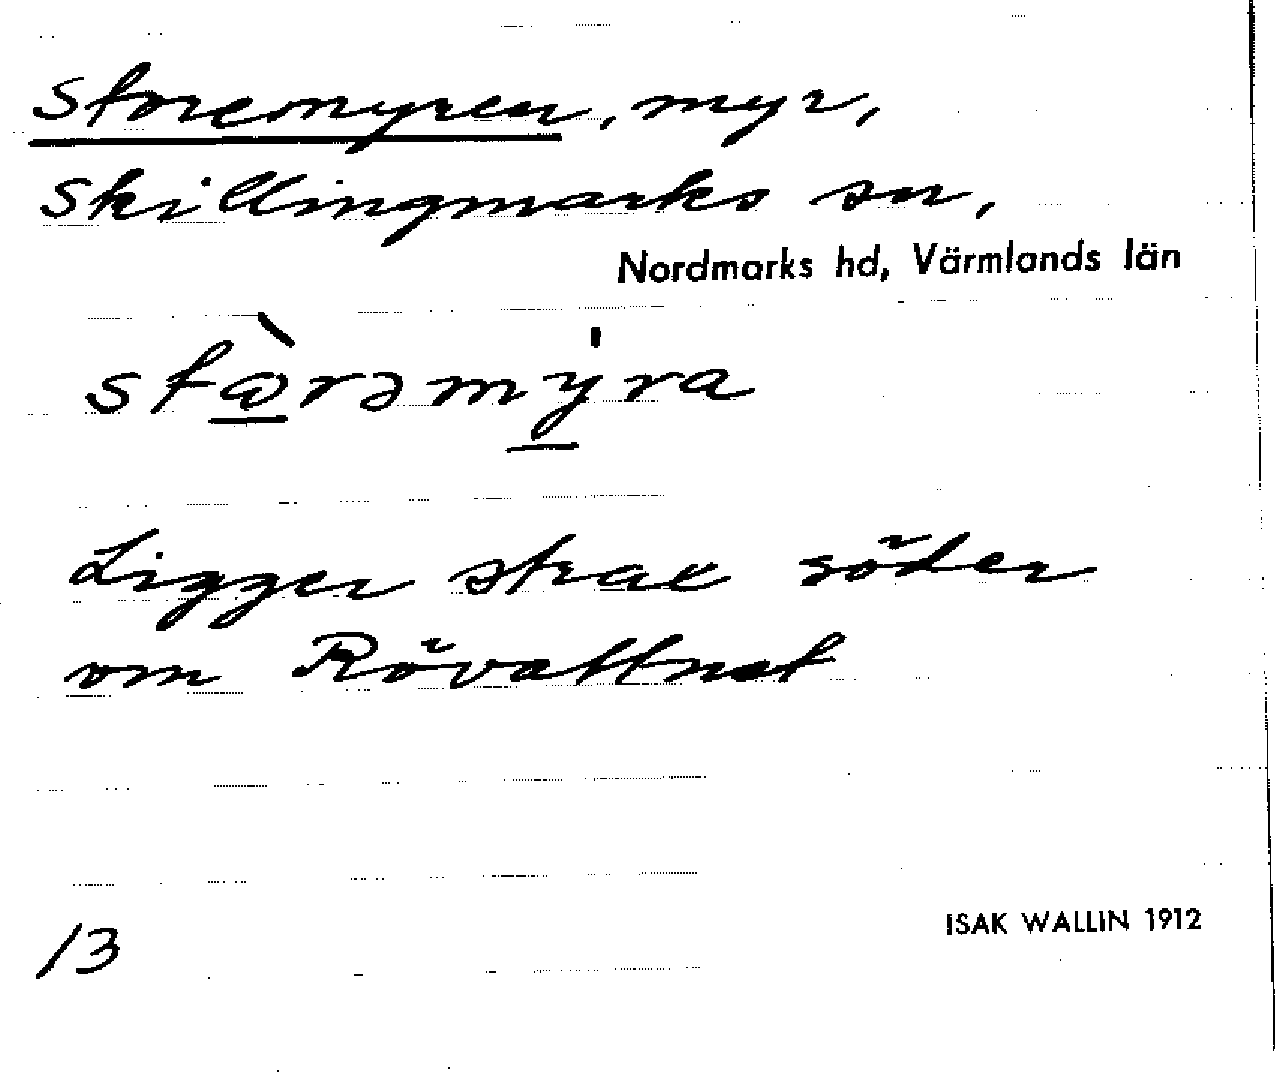 Storemyren, myr,
Skillingmarks sn,
Nordmarks hd, Värmlands län
stɷ̀rəmýra
Ligger strax söder
om Rövattnet
13
ISAK WALLIN 1912